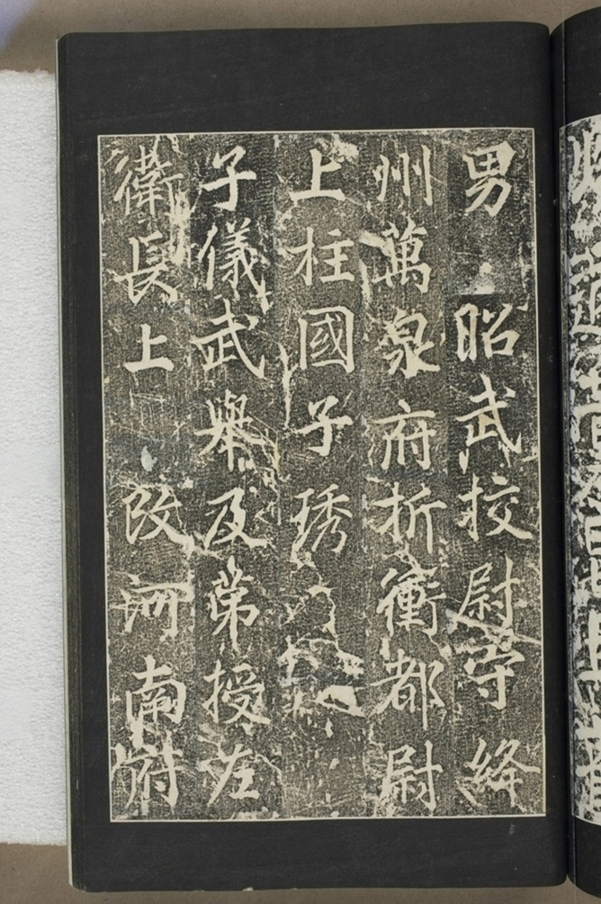 男 昭武挍尉守絳
州萬泉府折衝都尉
上柱國子琇
子儀武舉及第授左
衛長上 改河南府